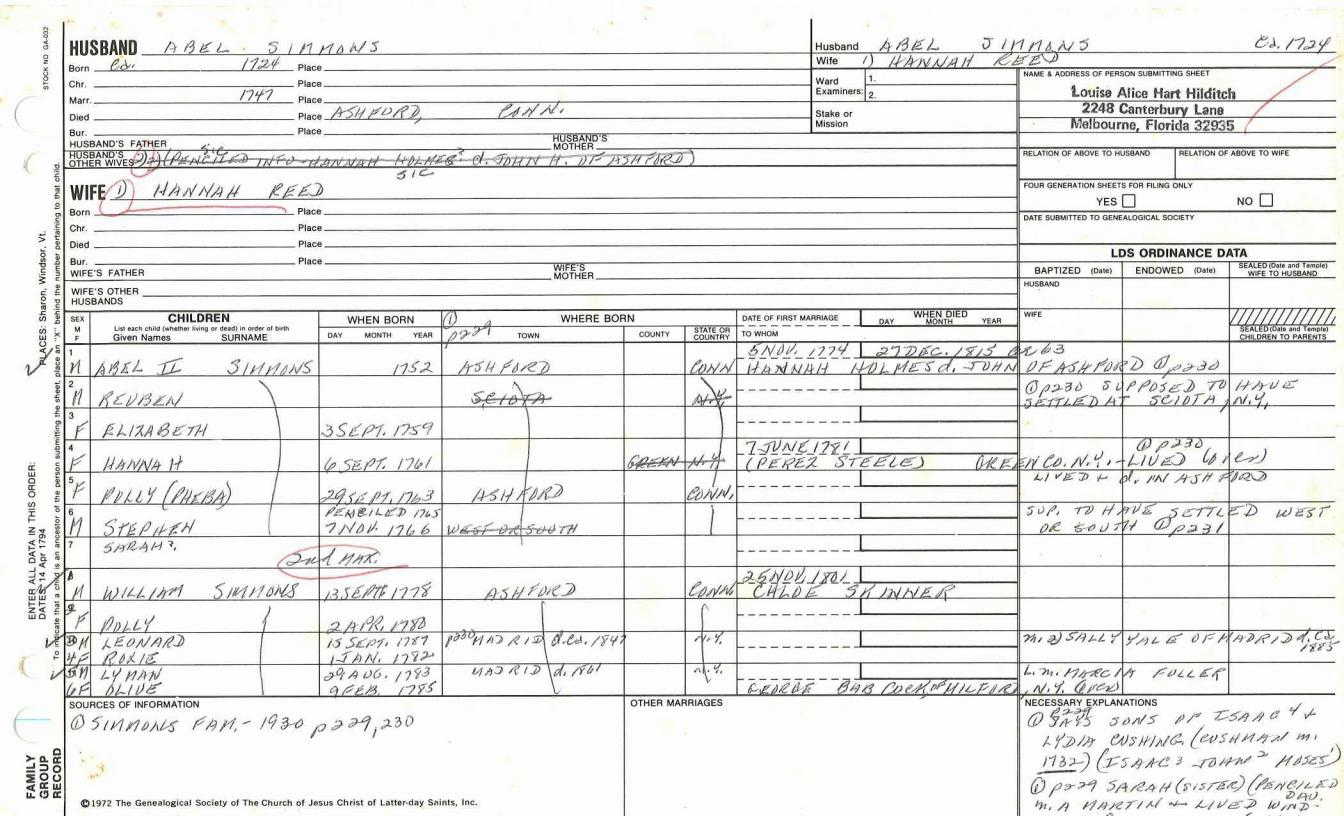 STOCK NO GA-032
HUSBAND ABEL SIMMONS
Born Ca. 1724 Place
Chr. Place
Marr. 1747 Place
Died Place ASHFORD, CONN.
Bur. Place
HUSBAND'S FATHER HUSBAND'S MOTHER
HUSBAND'S OTHER WIVES 2) (PENCILED INFO - HANNAH HOLMES? d. JOHN H. OF ASHFORD)
SIC
SIC
WIFE 1) HANNAH REED
Born Place
Chr. Place
Died Place
Bur. Place
WIFE'S FATHER WIFE'S MOTHER
WIFE'S OTHER HUSBANDS
Husband ABEL SIMMONS Ca. 1724
Wife 1) HANNAH REED
Ward Examiners: 1.
2.
Stake or Mission
NAME & ADDRESS OF PERSON SUBMITTING SHEET
Louise Alice Hart Hilditch
2248 Canterbury Lane
Melbourne, Florida 32935
RELATION OF ABOVE TO HUSBAND RELATION OF ABOVE TO WIFE
FOUR GENERATION SHEETS FOR FILING ONLY
YES NO
DATE SUBMITTED TO GENEALOGICAL SOCIETY
LDS ORDINANCE DATA
BAPTIZED (Date) ENDOWED (Date) SEALED (Date and Temple) WIFE TO HUSBAND
HUSBAND
WIFE
SEALED (Date and Temple) CHILDREN TO PARENTS
SEX M F CHILDREN List each child (whether living or dead) in order of birth Given Names SURNAME
WHEN BORN DAY MONTH YEAR
① p229 WHERE BORN TOWN COUNTY STATE OR COUNTRY
DATE OF FIRST MARRIAGE TO WHOM
WHEN DIED DAY MONTH YEAR
1 5 NOV. 1774 27 DEC. 1815 63
M ABEL II SIMMONS 1752 ASHFORD CONN HANNAH HOLMES d. JOHN OF ASHFORD ① p230
2 M REUBEN SCIOTA N.Y. ① p230 SUPPOSED TO HAVE
SETTLED AT SCIOTA, N.Y.
3 F ELIZABETH 3 SEPT. 1759
4 7 JUNE 1781 ① p230
F HANNAH 6 SEPT. 1761 GREEN N.Y. (PEREZ STEELE) GREEN CO. N.Y. - LIVED (over)
5 F POLLY (PHEBA) 29 SEPT. 1763 ASHFORD CONN. LIVED + d. IN ASHFORD
6 PENCILED 1765 SUP. TO HAVE SETTLED WEST
M STEPHEN 7 NOV. 1766 WEST OR SOUTH OR SOUTH ① p231
7 SARAH?
2nd MAR.
8 25 NOV. 1801
M WILLIAM SIMMONS 13 SEPT 1778 ASHFORD CONN CHLOE SKINNER
F POLLY 2 APR. 1780
3 M LEONARD 15 SEPT. 1787 p230 MADRID d. Ca. 1847 N.Y. m. 2) SALLY YALE OF MADRID d. Ca. 1883
4 F ROXIE 1 JAN. 1782
5 M LYMAN 29 AUG. 1783 MADRID d. 1861 N.Y. L. m. MARCIA FULLER
6 F OLIVE 9 FEB. 1785 GEORGE BABCOCK OF MILFORD, N.Y. (over)
SOURCES OF INFORMATION
① SIMMONS FAM. - 1930 p229, 230
OTHER MARRIAGES
NECESSARY EXPLANATIONS
① p229 SAYS SONS OF ISAAC 4 +
LYDIA CUSHING (CUSHMAN m.
1732) (ISAAC 3 JOHN 2 MOSES 1)
① p229 SARAH (SISTER) (PENCILED DAU.
m. A MARTIN + LIVED WIND-
©1972 The Genealogical Society of The Church of Jesus Christ of Latter-day Saints, Inc.
FAMILY GROUP RECORD
ENTER ALL DATA IN THIS ORDER:
DATES: 14 Apr 1794
PLACES: Sharon, Windsor, Vt.
To indicate that a child is an ancestor of the person submitting the sheet, place an "X" behind the number pertaining to that child.